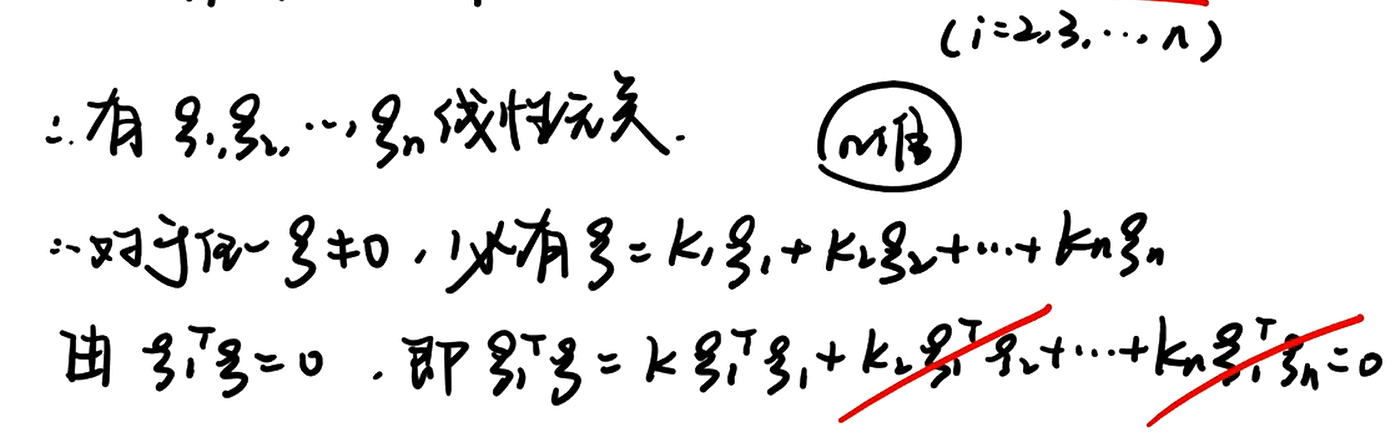 (i=2,3,⋯,n)
∴有 ξ₁,ξ₂,⋯,ξₙ 线性无关.
n维
∴对于任一 ξ≠0,必有 ξ=k₁ξ₁+k₂ξ₂+⋯+kₙξₙ
由 ξ₁ᵀξ=0.即 ξ₁ᵀξ=kξ₁ᵀξ₁+k₂ξ₁ᵀξ₂+⋯+kₙξ₁ᵀξₙ=0